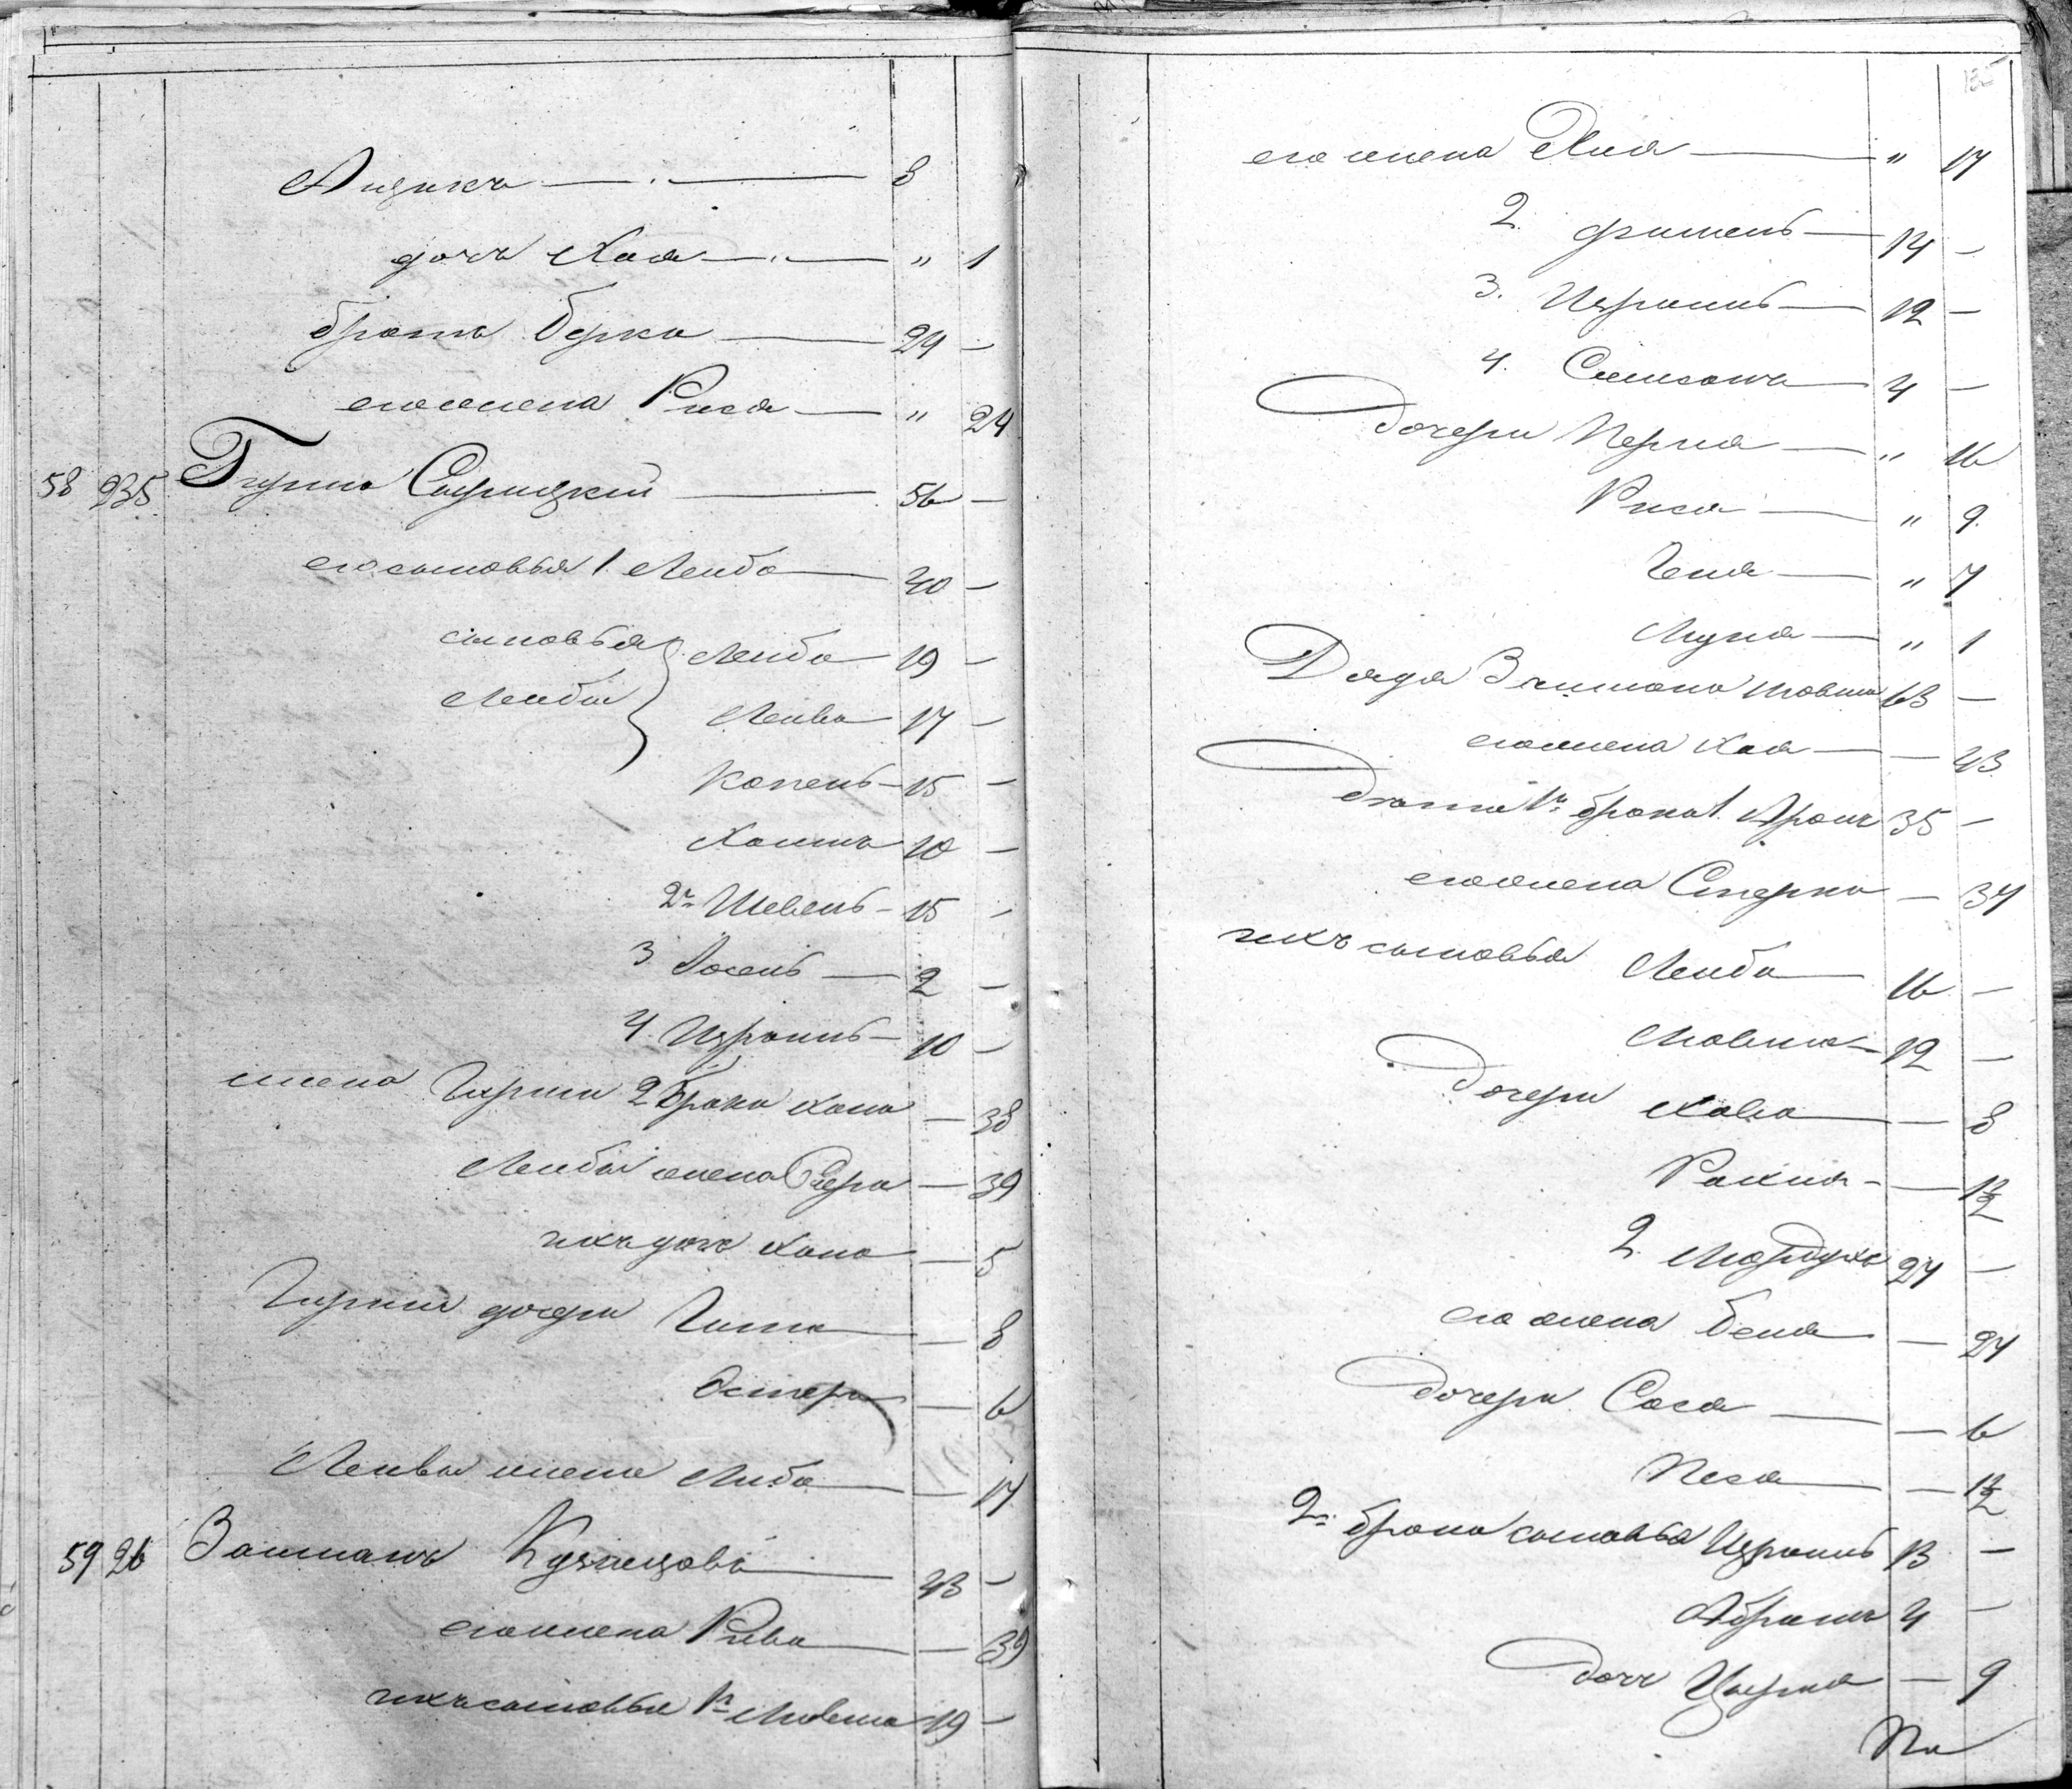 Айзикъ — 8
дочь Хая — " 1
братъ Берка — 24 —
его жена Рися — " 24
58 235 Гирша — 56 —
его сыновья 1. Лейба — 40 —
сыновья Лейба 19 —
Лейбы Лейва 17 —
Копель — 15 —
Хаимъ 10 —
2й Шевель — 15 —
3 Іосель — 2 —
4. Израиль — 10 —
жена Гирши 2 брака Хана — 38
Лейбы жена — 39
ихъ дочь Хана — 5
Гирши дочери Гита — 8
Эстера — 6
Лейвы жена Либа — 17
59 26 Залманъ Кузнецовъ — 43 —
его жена Рива — 39
ихъ сыновья 1й Мовша 19 —
135
его жена — " 17
2. Фишель — 14 —
3. Израиль — 12 —
4. — 4 —
Дочери Перла — " 16
Рися — " 9.
Геня — " 7
— " 1
Дядя Залмана Мовша 63 —
его жена Хая — — 43
1й брака 1. Аронъ 35 —
его жена Стерка — 34
ихъ сыновья Лейба — 16 —
Мовша — 12 —
Дочери Хавка — — 8
— — 1½
2. Мордухъ 27 —
его жена Бейля — 24
Дочери Сося — — 6
Песя — — 1½
2й брака сыновья Израиль 13 —
Абрамъ 4 —
дочь — 9